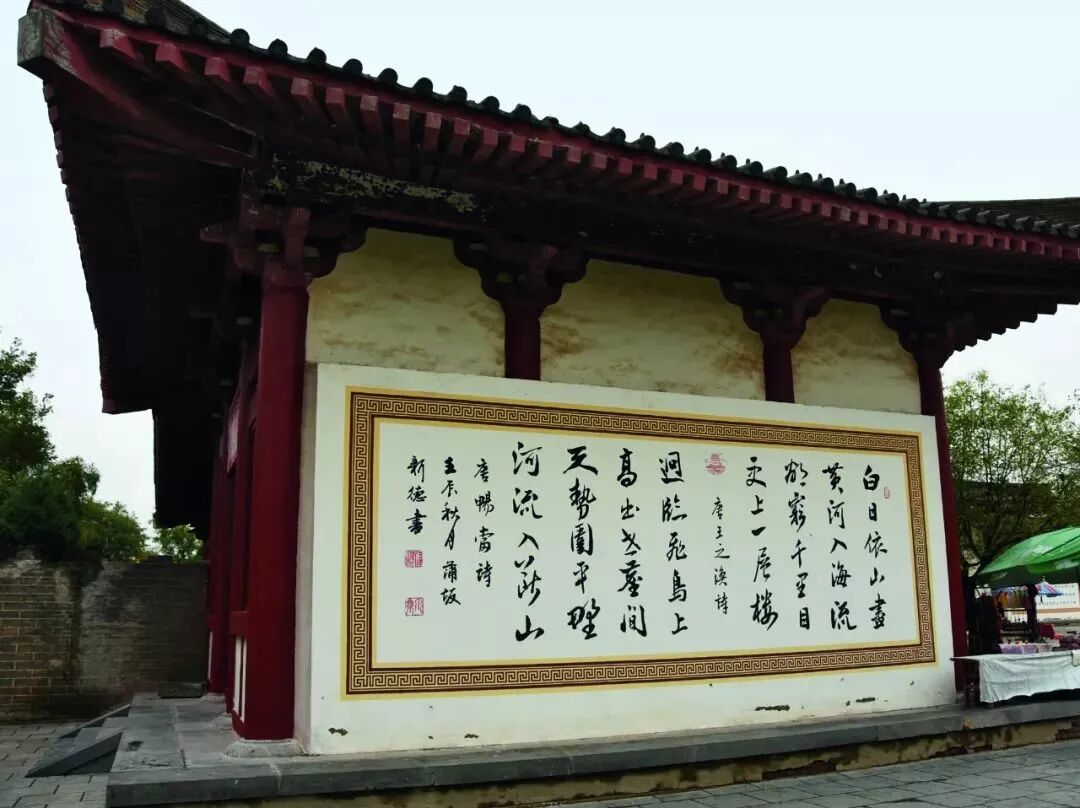 白日依山盡
黄河入海流
欲窮千里目
更上一层楼
唐王之渙詩
迥臨飛鳥上
高出世塵間
天勢圍平野
河流入斷山
唐暢當詩
壬辰秋月蒲坂
新德書